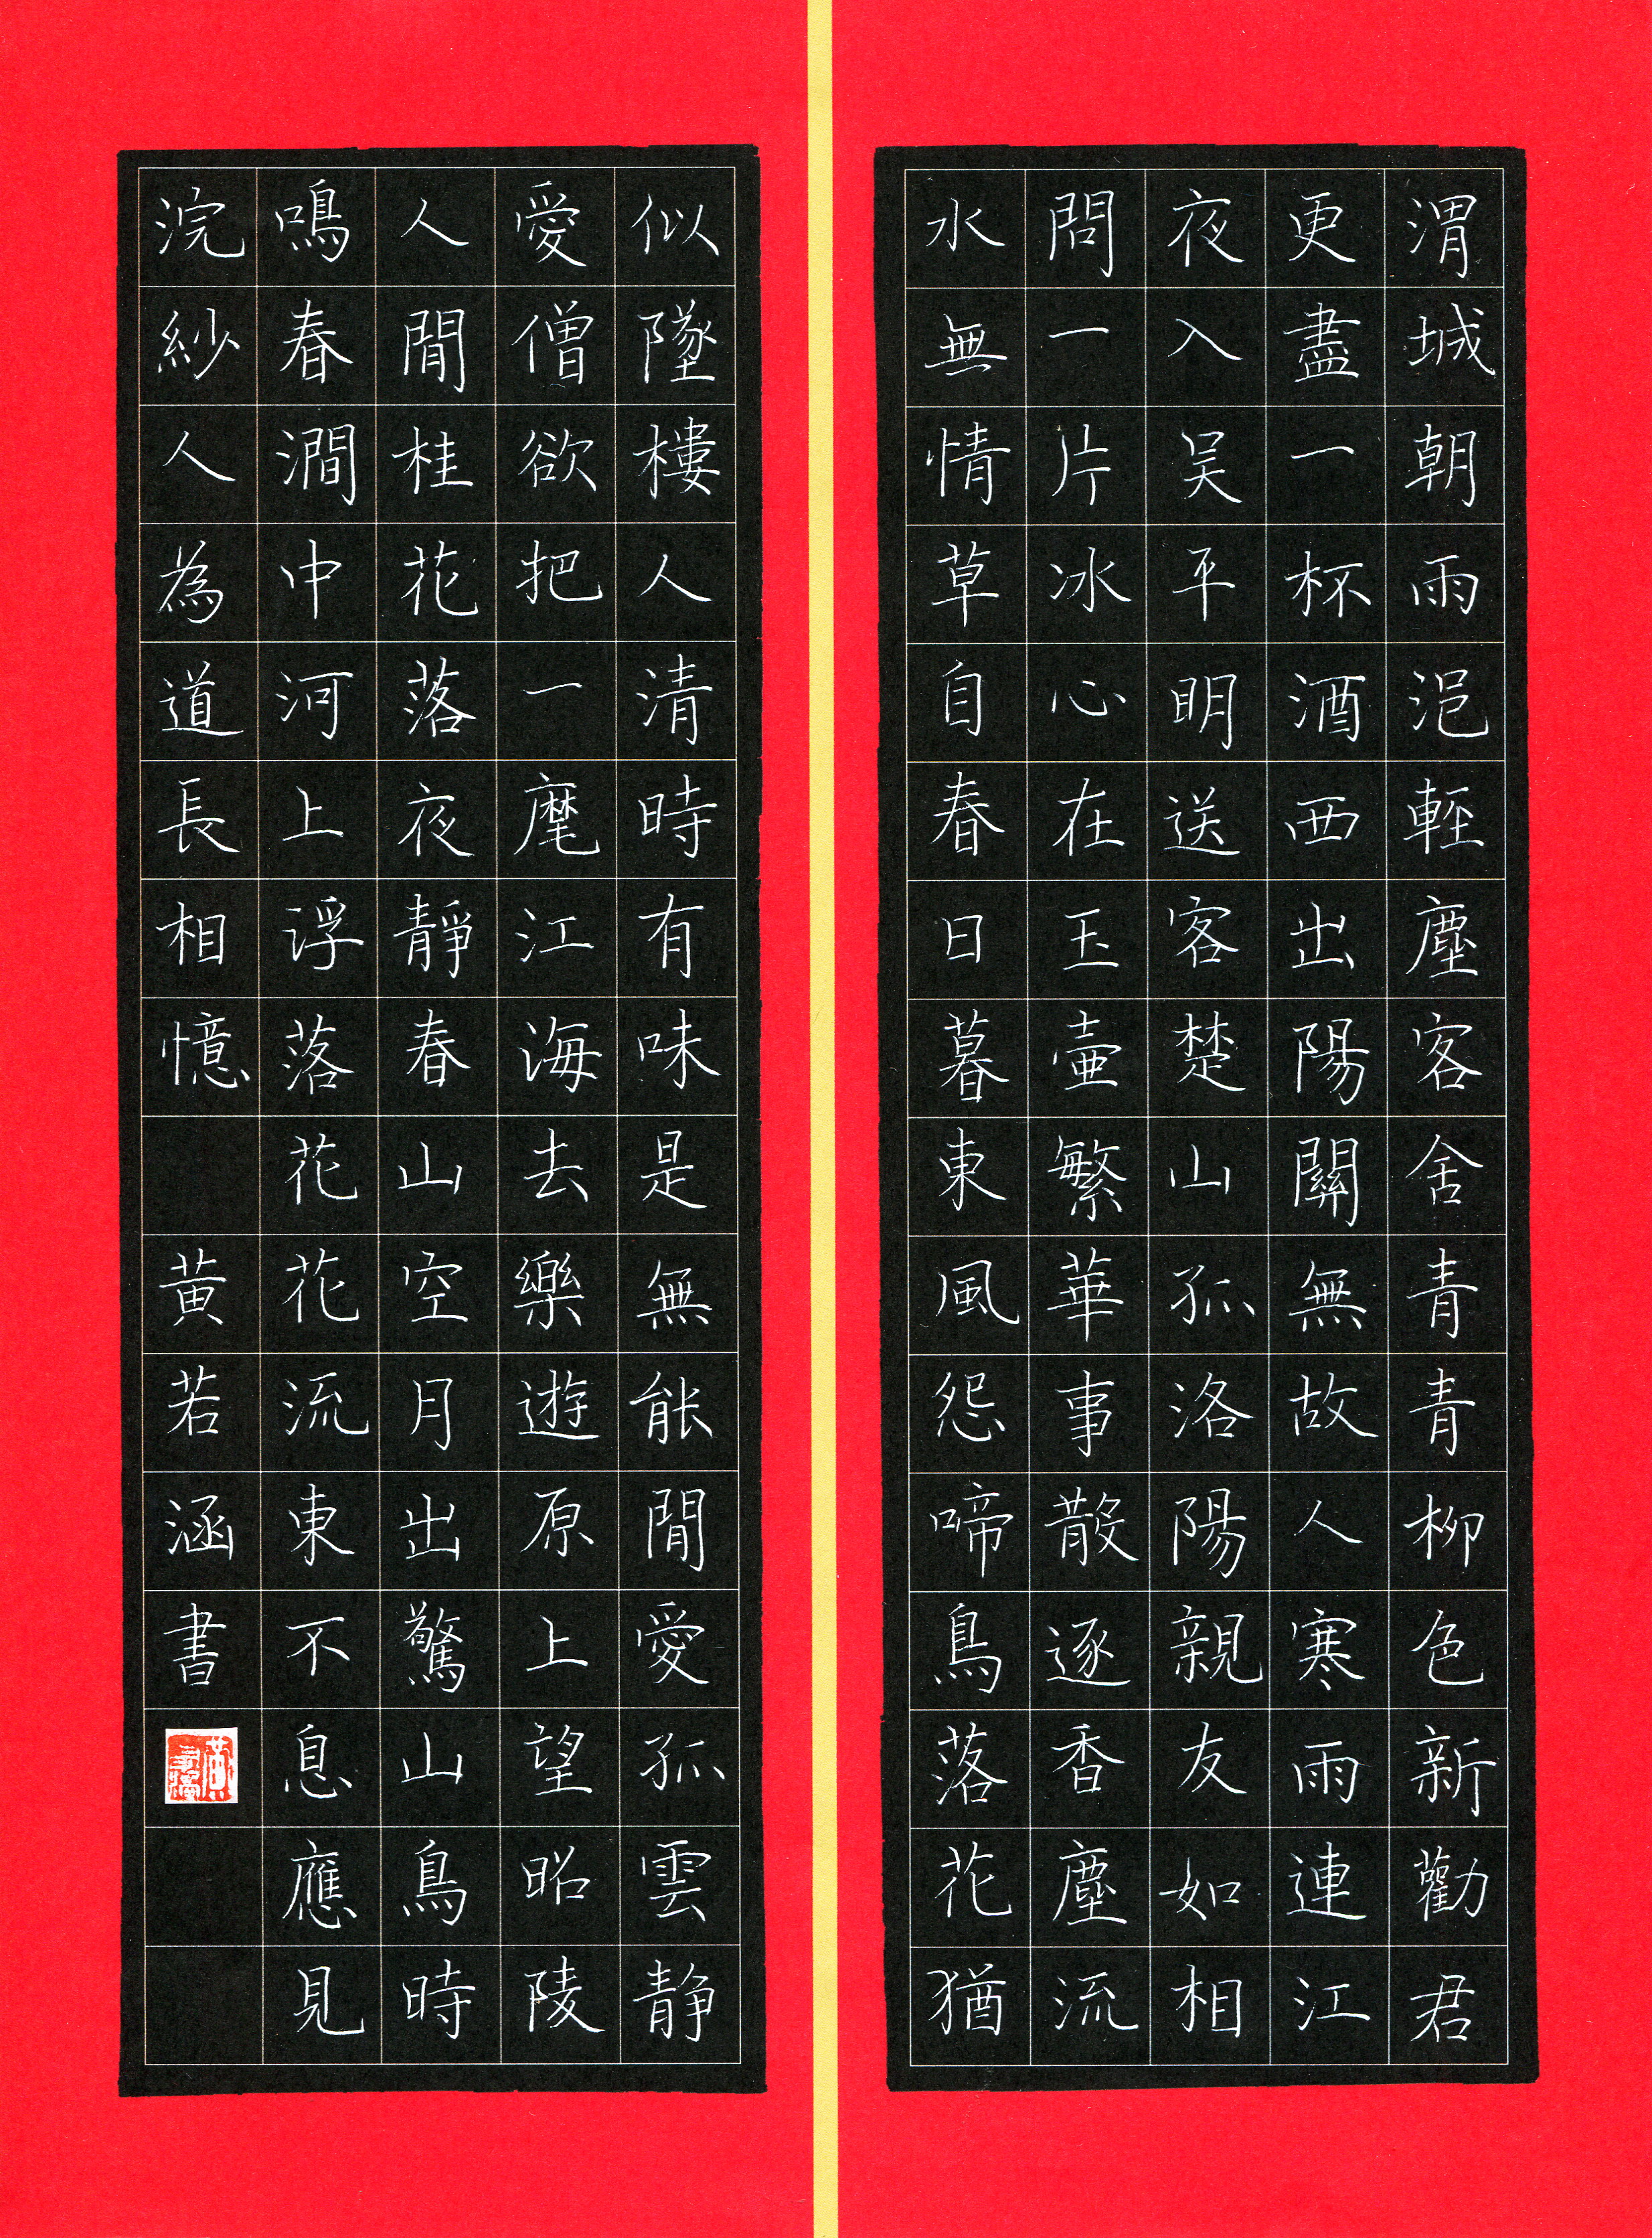 渭城朝雨浥輕塵客舍青青柳色新勸君
更盡一杯酒西出陽關無故人寒雨連江
夜入吴平明送客楚山孤洛陽親友如相
問一片冰心在玉壺繁華事散逐香塵流
水無情草自春日暮東風怨啼鳥落花猶
似墜樓人清時有味是無能閒愛孤雲静
愛僧欲把一麾江海去樂遊原上望昭陵
人閒桂花落夜靜春山空月出驚山鳥時
鳴春澗中河上浮落花花流東不息應見
浣紗人為道長相憶 黃若涵書